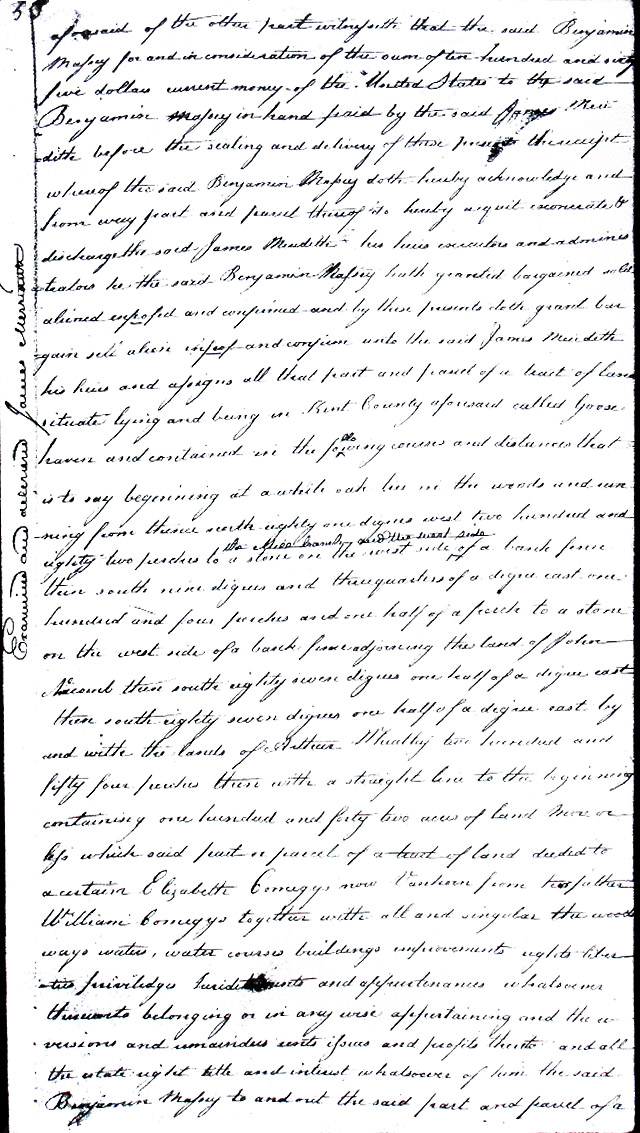 aforesaid of the other part witnesseth that the said Benjamin
Massey for and in consideration of the sum of ten hundred and sixty
five dollars current money of the United States to the said
Benjamin Massey in hand paid by the said James Mere
dith before the sealing and delivery of these presents the receipt
whereof the said Benjamin Massey doth hereby acknowledge and
from every part and parcel thereof do hereby acquit exonerate &
discharge the said James Meredith his heirs executors and adminis
trators he the said Benjamin Massey hath granted bargained sold
aliened enfeofed and confirmed and by these presents doth grant bar
gain sell alien infeof and confirm unto the said James Meredeth
his heirs and assigns all that part and parcel of a tract of land
situate lying and being in Kent County aforesaid called Goose
haven and contained in the following courses and distances that
is to say beginning at a white oak tree in the woods and run
ning from thence north eighty one degrees west two hundred and
the Mill branch and the west side
eighty two perches to a stone on the west side of a bank fence
then south nine degrees and three quarters of a degree east one
hundred and four perches and one half of a perch to a stone
on the west side of a bank fence adjoining the land of John
Nacomb then south eighty seven degrees one half of a degree east
then south eighty seven degrees one half of a degree east by
and with the lands of Arthur Wheatley two hundred and
fifty four perches then with a straight line to the beginning
containing one hundred and forty two acres of land more or
less which said part or parcel of a tract of land deeded to
a certain Elizabeth Comegys now Vanhorn from her father
William Comegys together with all and singular the woods
ways waters, water courses buildings improvements rights liber
ties priviledges hereditaments and appurtenances whatsoever
thereunto belonging or in any wise appertaining and the re
versions and remainders rents issues and profits thereto and all
the estate right title and interest whatsoever of him the said
Benjamin Massey to and out the said part and parcel of a
Examined and delivered James Merrideth